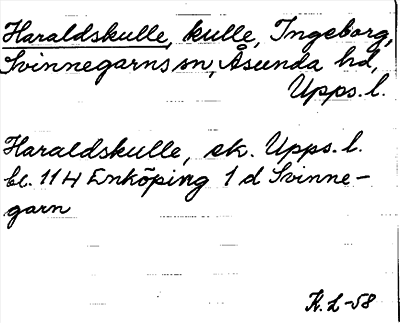 Haraldskulle, kulle, Ingeborg,
Svinnegarns sn, Åsunda hd,
Upps. l.
Haraldskulle, ek. Upps. l.
bl. 114 Enköping 1 d Svinne-
garn
K. L-58